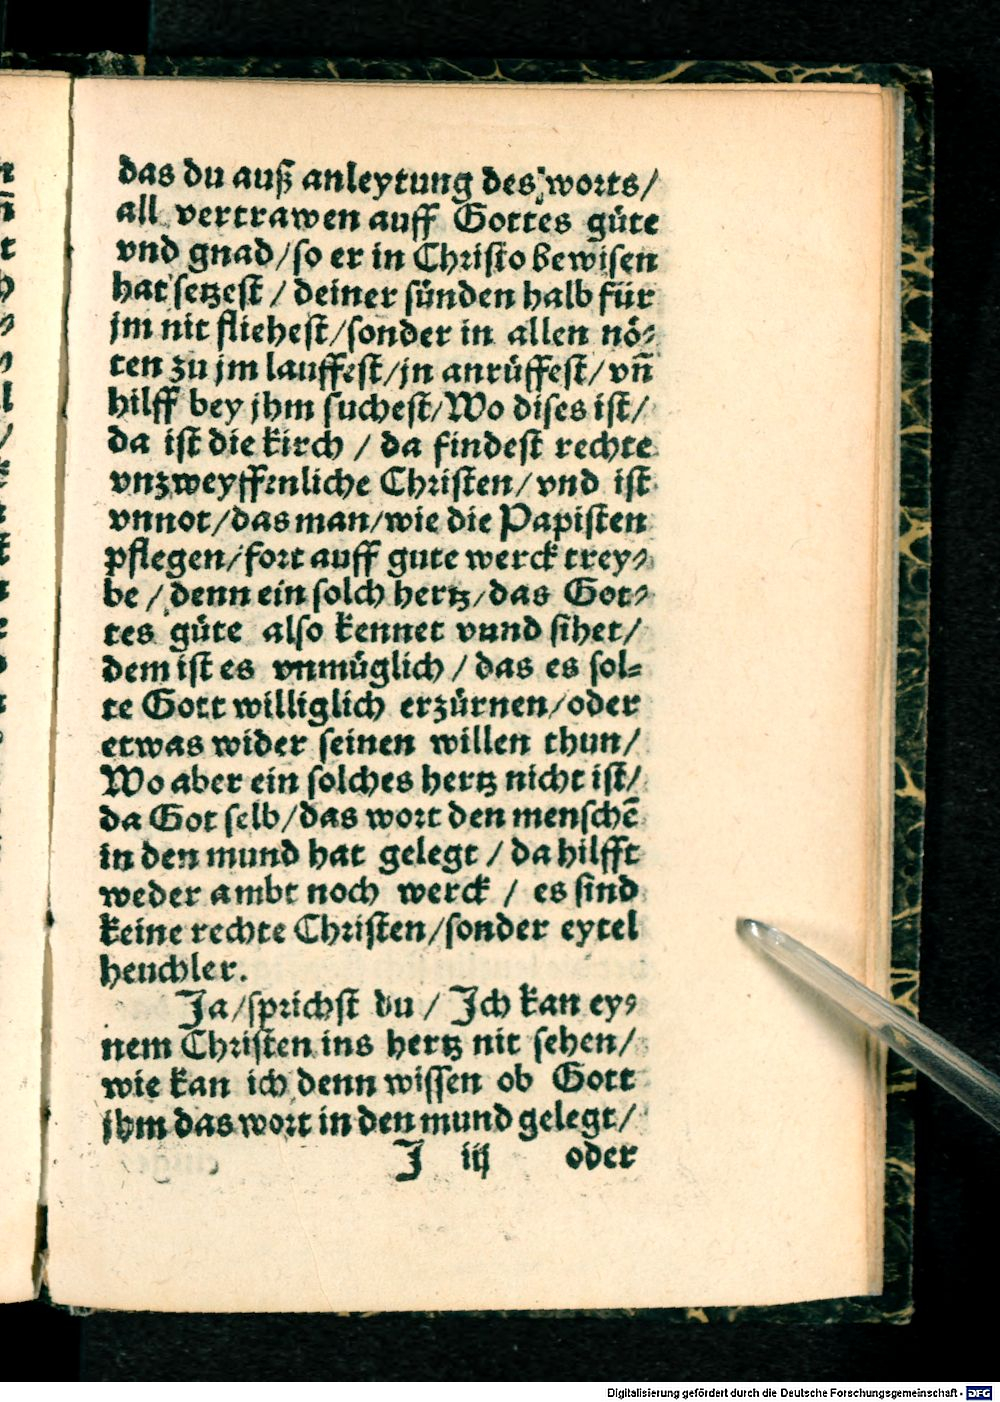 das du auß anleytung des worts/
all vertrawen auff Gottes güte
vnd gnad/so er in Christo bewisen
hat setzest / deiner sünden halb für
jm nit fliehest/sonder in allen nö⸗
ten zu jm lauffest/jn anrüffest/vñ
hilff bey jhm suchest/Wo dises ist/
da ist die kirch / da findest rechte
vnzweyffenliche Christen/vnd ist
vnnot/das man/wie die Papisten
pflegen/fort auff gute werck trey⸗
be / denn ein solch hertz/das Got⸗
tes güte also kennet vnnd sihet/
dem ist es vnmüglich / das es sol⸗
te Gott williglich erzürnen/oder
etwas wider seinen willen thun/
Wo aber ein solches hertz nicht ist/
da Got selb/das wort den menschē
in den mund hat gelegt / da hilfft
weder ambt noch werck / es sind
keine rechte Christen/sonder eytel
heuchler.
Ja/sprichst du / Ich kan ey⸗
nem Christen ins hertz nit sehen/
wie kan ich denn wissen ob Gott
jhm das wort in den mund gelegt/
J iij oder
Digitalisierung gefördert durch die Deutsche Forschungsgemeinschaft - DFG